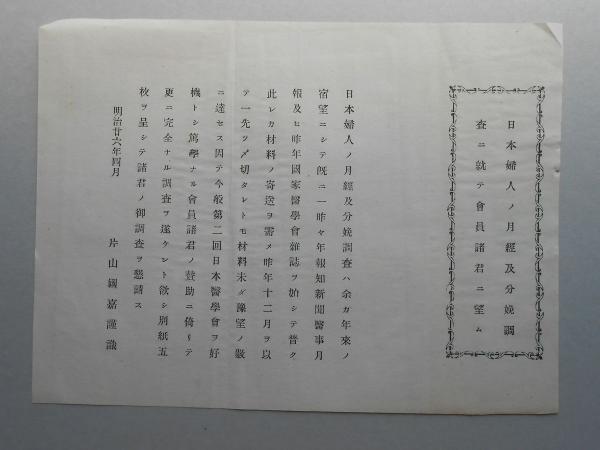 日本婦人ノ月經及分娩調
査ニ就テ會員諸君ニ望ム
日本婦人ノ月經及分娩調査ハ余ガ年來ノ
宿望ニシテ旣ニ一昨々年報知新聞醫事月
報及ヒ昨年國家醫學會雜誌ヲ始シテ普ク
此レカ材料ノ寄送ヲ需メ昨年十二月ヲ以
テ一先ツ〆切タレトモ材料未ダ豫望ノ數
ニ達セス因テ今般第二回日本醫學會ヲ好
機トシ篤學ナル會員諸君ノ賛助ニ倚リテ
更ニ完全ナル調査ヲ遂ケント欲シ別紙五
枚ヲ呈シテ諸君ノ御調査ヲ懇請ス
明治廿六年四月
片山國嘉謹識